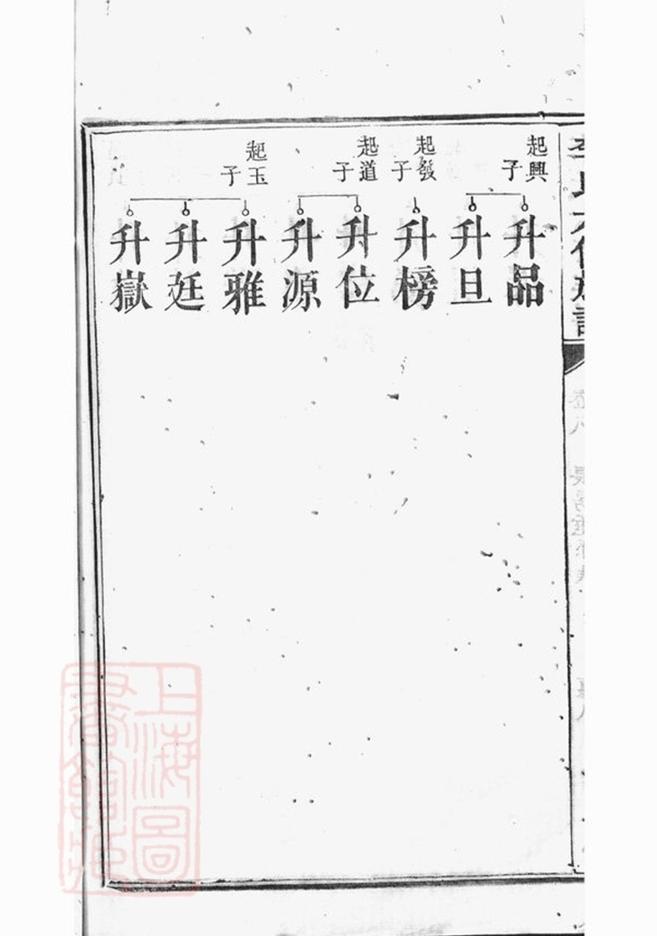 起興子
升品
升旦
起發子
升榜
起道子
升位
升源
起玉子
升雅
升廷
升嶽
上海圖書館藏